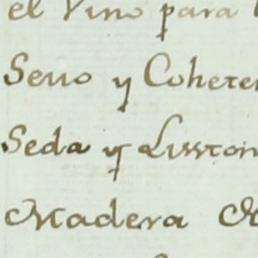 el Vino para
Sevo y Cohete
Seda y Liston
Madera